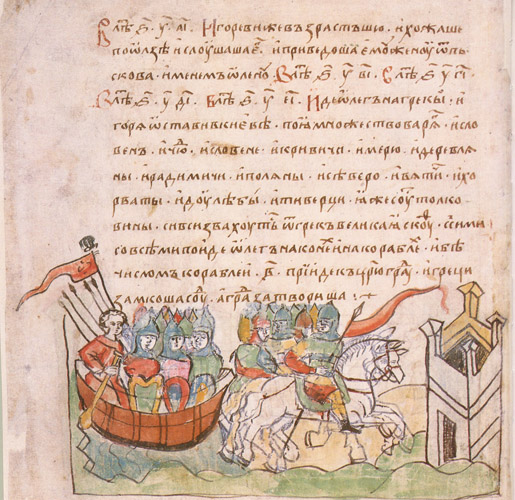 В лѣт ҂ѕ҃ у҃ аі҃ Игореви же възрастъшю. и хожаше
по ѡлзѣ и слоушаше е҃. и приведоша емоу женоу ѿ пь
скова. именемъ ѡленоу. В лѣт ҂ѕ҃ у҃ ві҃. В лѣт ҂ѕ҃ у҃ гі҃.
В лѣт ҂ѕ҃ у҃ ді҃. В лѣт ҂ѕ҃ у҃ еі҃. Иде ѡлегъ на грекы. и
горя ѡстави в киевѣ. поя множество варя. и сло
венъ. и чю. и словене. и кривичи. и мерю. и деревля
ны. и радимичи. и поляны. и северо. и вятичи. и хо
рваты. и доулѣбы. и тиверци. яже соуть толко
вины. си вси звахоуть ѿ грекъ великая скоуф. с сими
со всѣми поиде ѡлегъ на конех и на кораблех. и бѣ
числомъ кораблеи ҂в҃. прииде к црюграду. и греци
замкоша соуд. а град затвориша